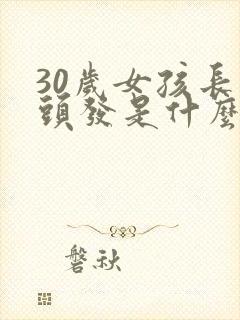 30歲女孩長
頭發是什麼
磐秋